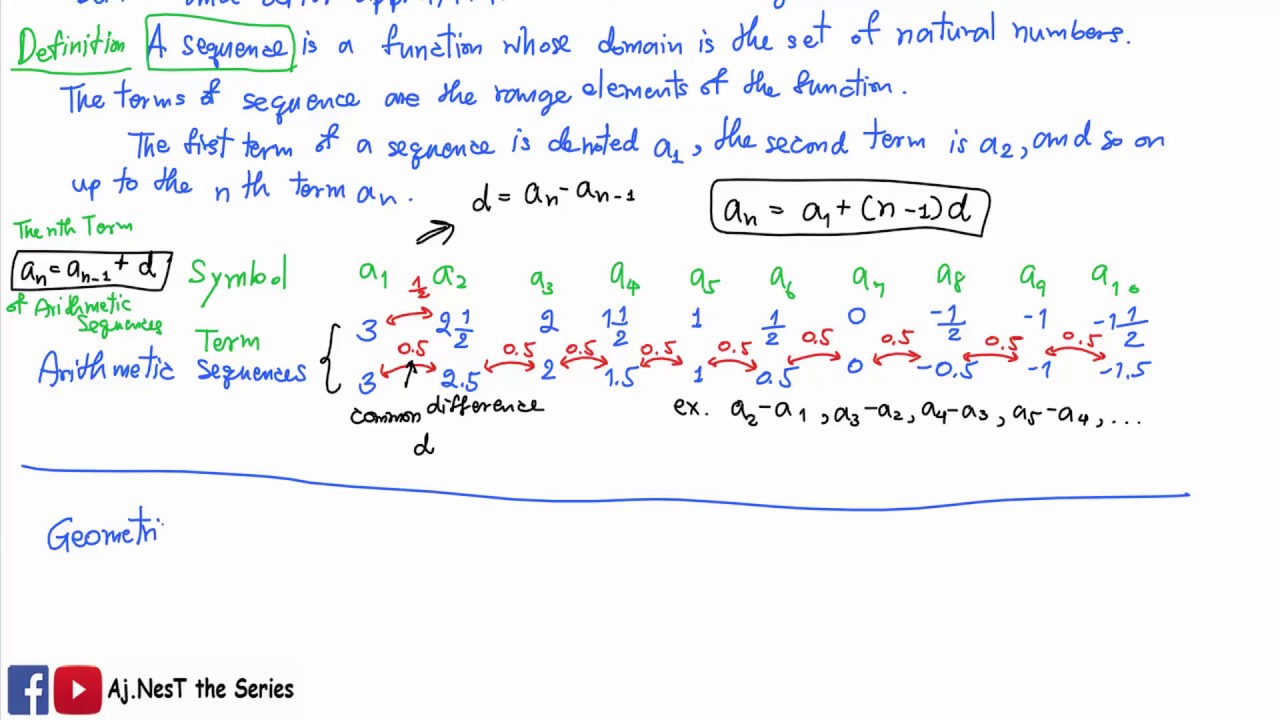 Definition A sequence is a function whose domain is the set of natural numbers.
The terms of sequence are the range elements of the function.
The first term of a sequence is denoted a₁, the second term is a₂, and so on
up to the nth term aₙ.
d = aₙ - aₙ₋₁
aₙ = a₁ + (n-1)d
The nth Term
aₙ = aₙ₋₁ + d
of Arithmetic
Sequences
Symbol a₁ a₂ a₃ a₄ a₅ a₆ a₇ a₈ a₉ a₁₀
1/2
Term 3 2 1/2 2 1 1/2 1 1/2 0 -1/2 -1 -1 1/2
0.5 0.5 0.5 0.5 0.5 0.5 0.5 0.5 0.5
Arithmetic Sequences 3 2.5 2 1.5 1 0.5 0 -0.5 -1 -1.5
common difference
d
ex. a₂-a₁, a₃-a₂, a₄-a₃, a₅-a₄, ...
Geometri
Aj.NesT the Series